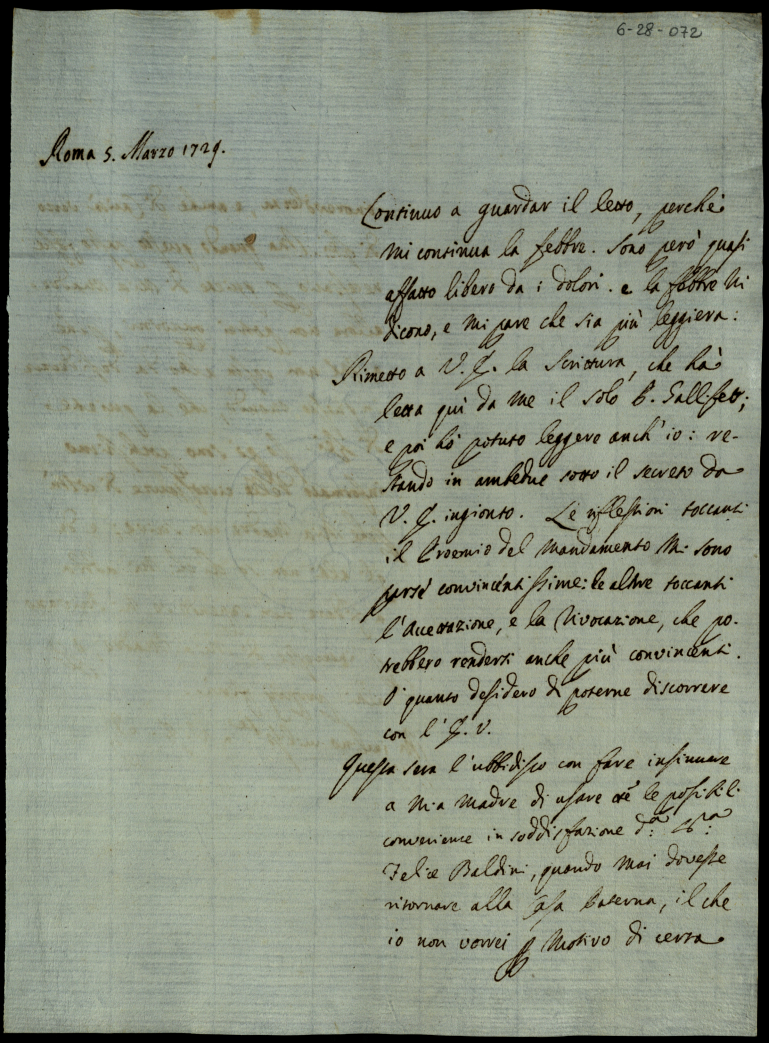 6-28-072
Roma 5. Marzo 1729.
Continuo a guardar il letto, perche
mi continua la febbre. Sono però quasi
affatto libero da i dolori. e la febbre mi
dicono, e mi pare che sia più leggiera:
Rimetto a V. E. la Scrittura, che hà
letta quì da me il solo P. Gallifett;
e poi hò potuto leggere anch' io: re-
stando in ambedue sotto il secreto da
V. E. ingionto. Le riflessioni toccanti
il Proemio del Mandamento mi sono
parse convincentissime: le altre toccanti
l'Accettazione, e la Rivocazione, che po-
trebbero rendersi anche più convincenti.
O' quanto desidero di poterne discorrere
con l' E. V.
Questa sera l'ubbidisco con fare insinuare
a mia Madre di usare le possibili
convenienze in soddisfazione d:ª
Felice Baldini, quando mai dovesse
ritornare alla Casa Paterna, il che
io non vorrei Motivo di certa